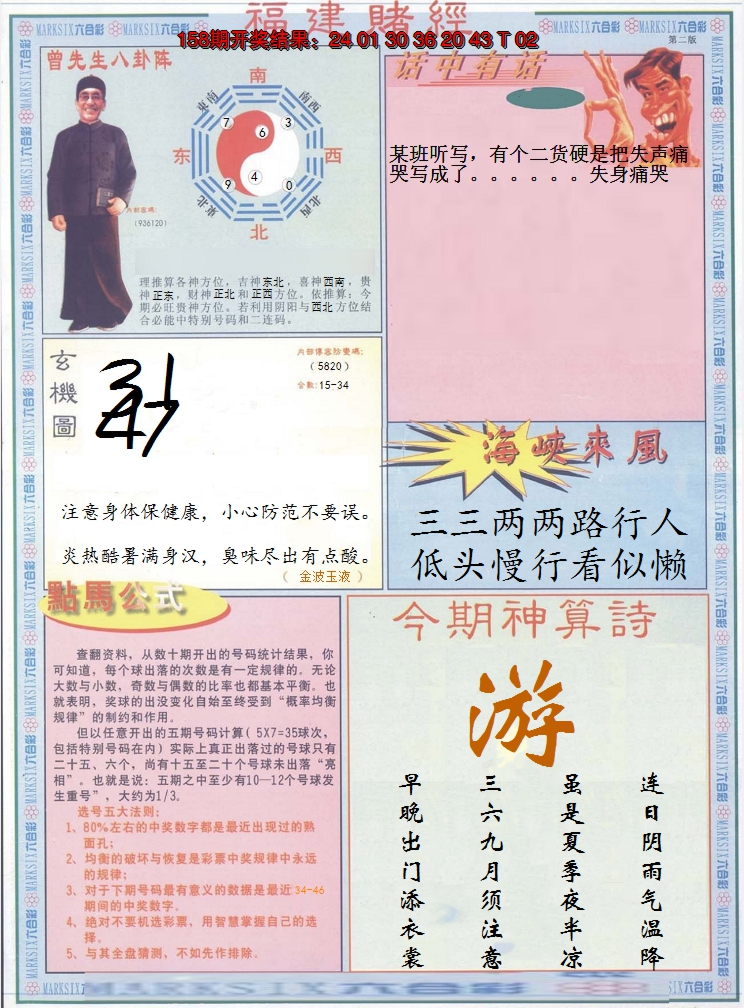 福建賭經
158期开奖结果：24 01 30 36 20 43 T 02
第二版
MARKSIX六合彩
曾先生八卦陈
南
東南
南西
7
6
3
东
西
9
4
0
東北
西北
北
内部密碼：
（936120）
理推算各神方位，吉神东北，喜神西南，贵
神正东，财神正北和正西方位。依推算：今
期必旺贵神方位。若利用阴阳与西北方位结
合必能中特别号码和二连码。
话中有话
某班听写，有个二货硬是把失声痛
哭写成了。。。。。。失身痛哭
玄機圖
（5820）
合数：15-34
注意身体保健康，小心防范不要误。
炎热酷署满身汉，臭味尽出有点酸。
（ 金波玉液 ）
海峽來風
三三两两路行人
低头慢行看似懒
點馬公式
查翻资料，从数十期开出的号码统计结果，你
可知道，每个球出落的次数是有一定规律的。无论
大数与小数，奇数与偶数的比率也都基本平衡。也
就表明，奖球的出没变化自始至终受到“概率均衡
规律”的制约和作用。
但以任意开出的五期号码计算（5X7=35球次，
包括特别号码在内）实际上真正出落过的号球只有
二十五、六个，尚有十五至二十个号球未出落“亮
相”。也就是说：五期之中至少有10—12个号球发
生重号”，大约为1/3。
选号五大法则：
1、80%左右的中奖数字都是最近出现过的熟
面孔；
2、均衡的破坏与恢复是彩票中奖规律中永远
的规律；
3、对于下期号码最有意义的数据是最近34-46
期间的中奖数字。
4、绝对不要机选彩票，用智慧掌握自己的选
择。
5、与其全盘猜测，不如先作排除。
今期神算詩
游
连日阴雨气温降
虽是夏季夜半凉
三六九月须注意
早晚出门添衣裳